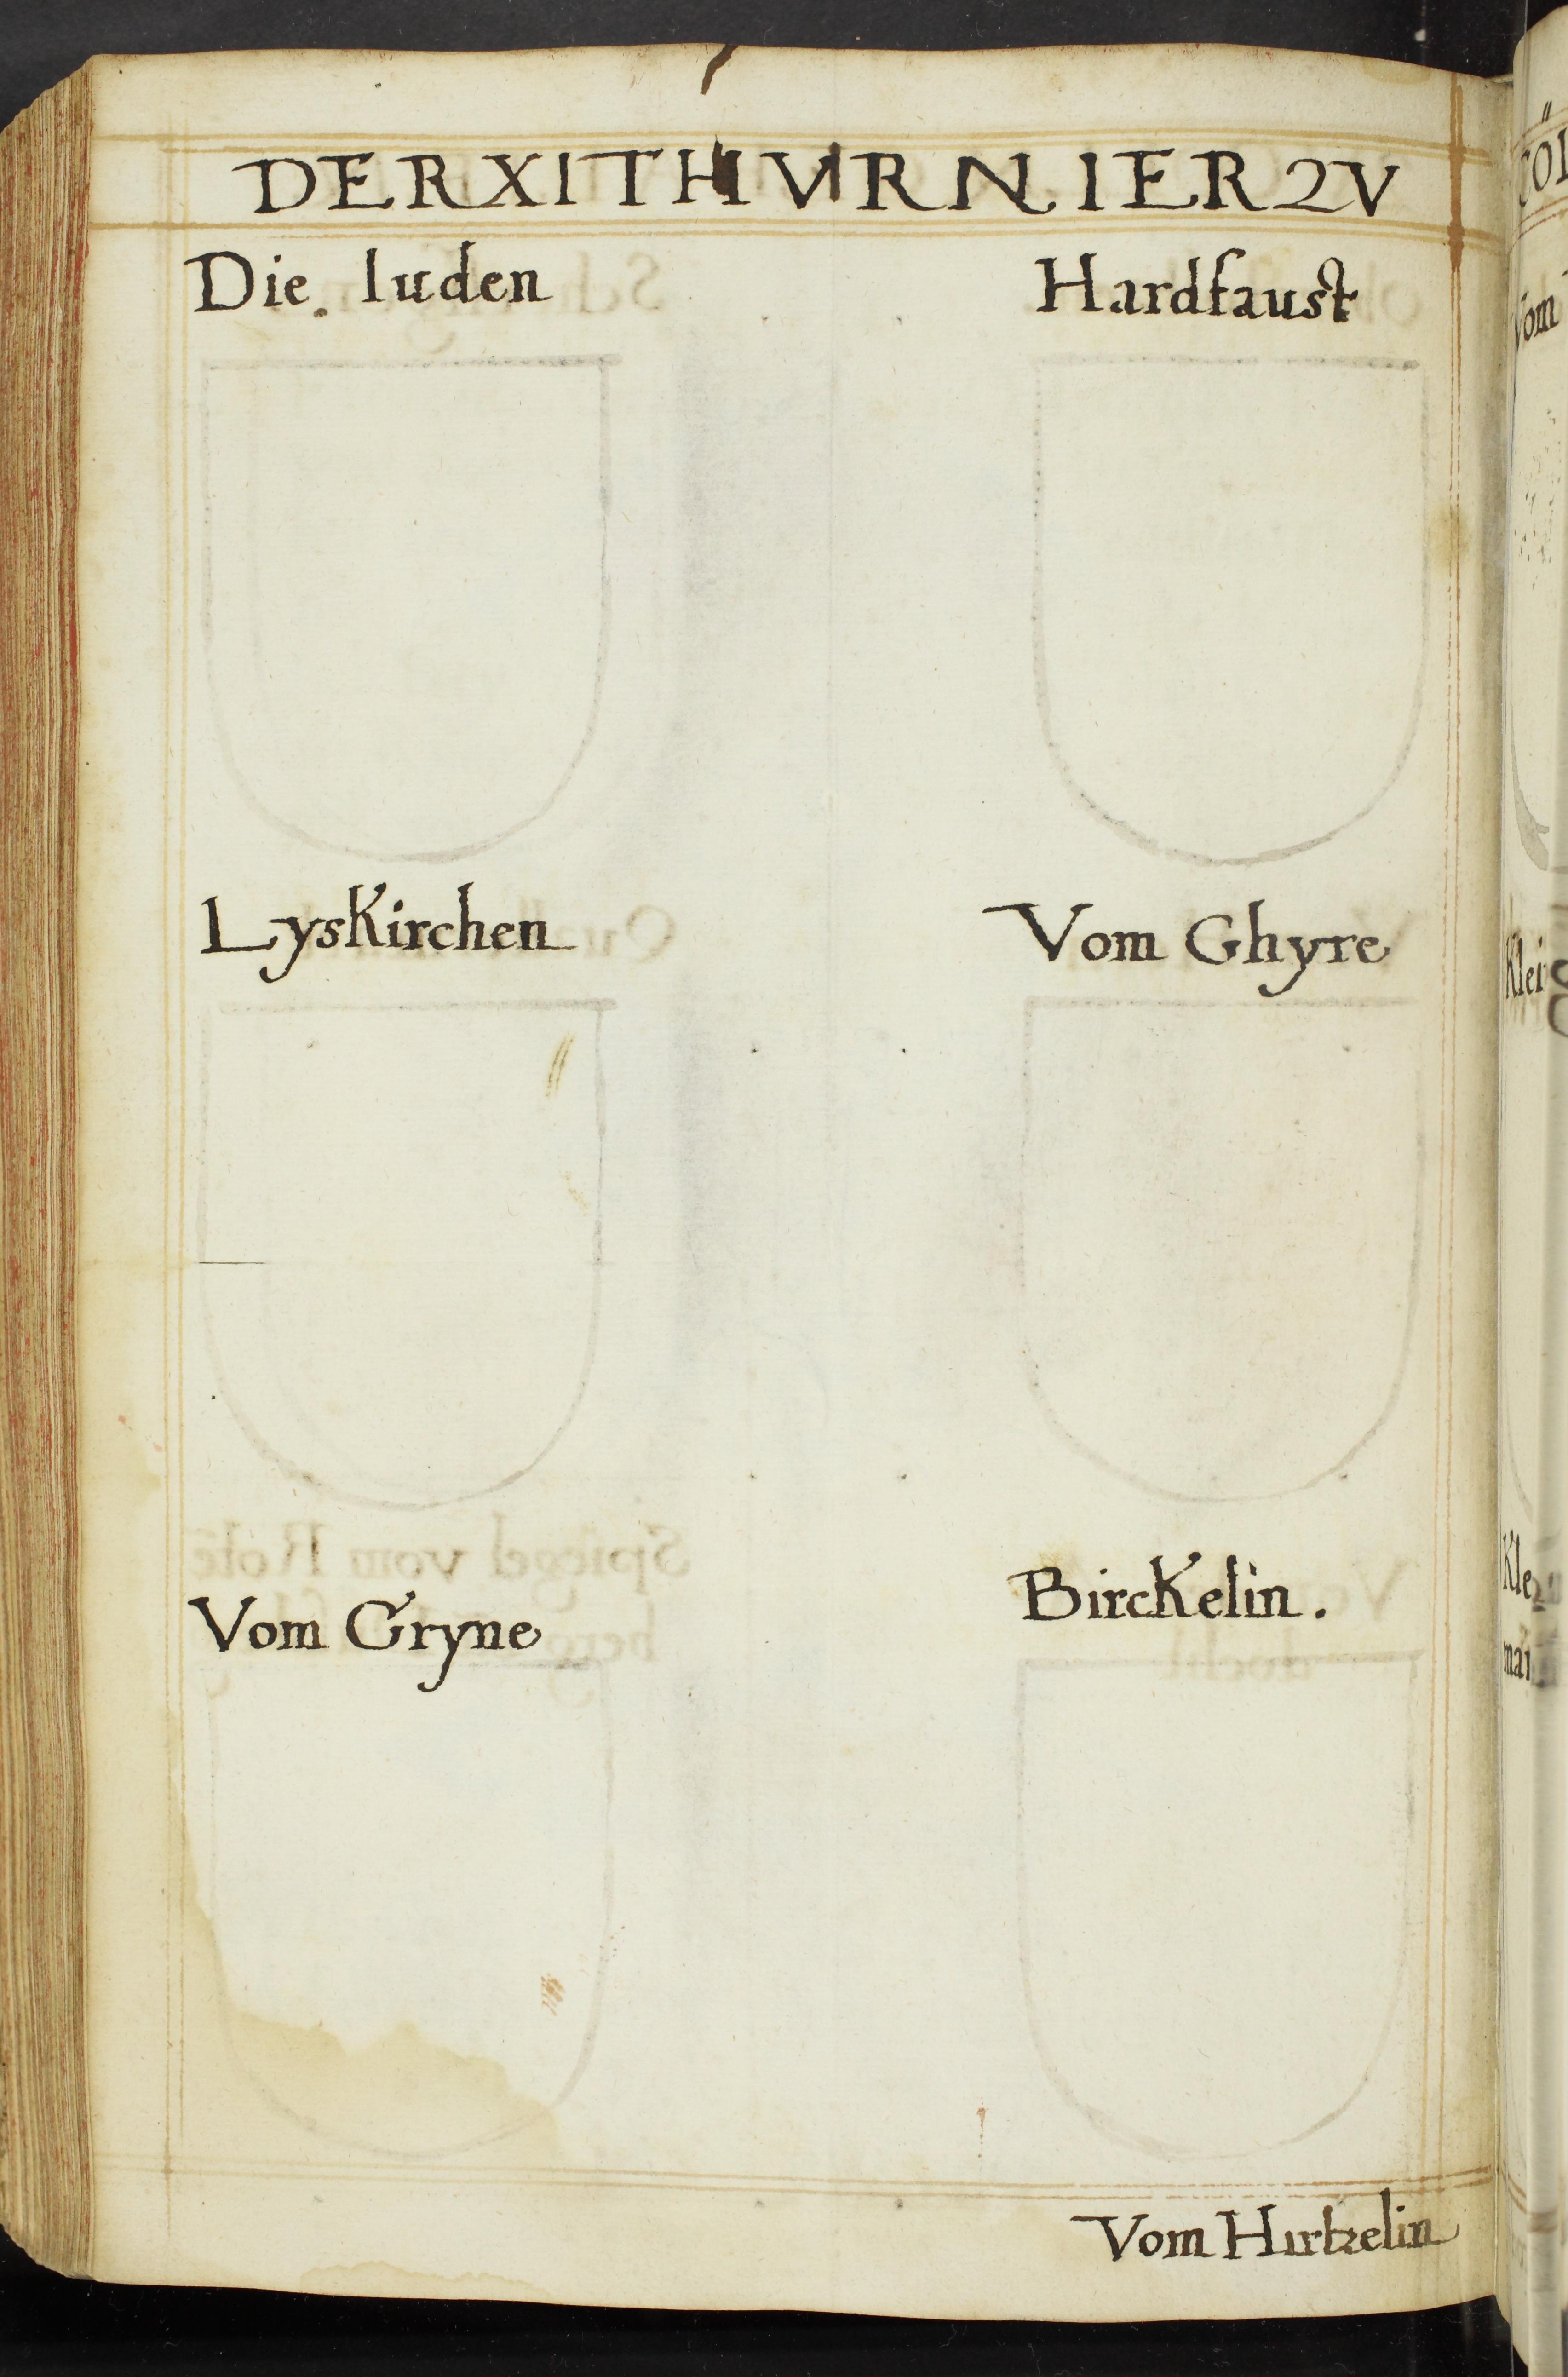 DER XI THVRNIER ZV
Die Iuden
Hardfaust
Lyskirchen
Vom Ghyre
Vom Gryne
Birckelin.
Vom Hirtzelin